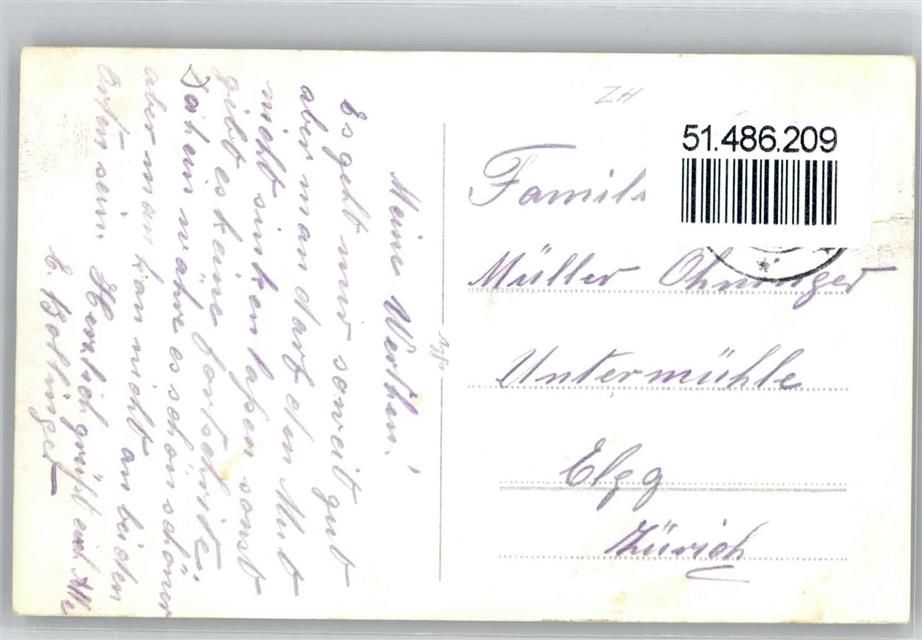 Meine Werthen!
Es geht mir soweit gut
aber man darf den Mut
nicht sinken laßen sonst
gibt es keine Fortschritte.
Dahein wäre es schön schöner
aber man kan nicht an beiden
Orten sein. Herzlich grüßt euch Alle
E. Bollinger
ZH
51.486.209
Famile
Müller Ohninger
Untermühle
Elgg
Zürich